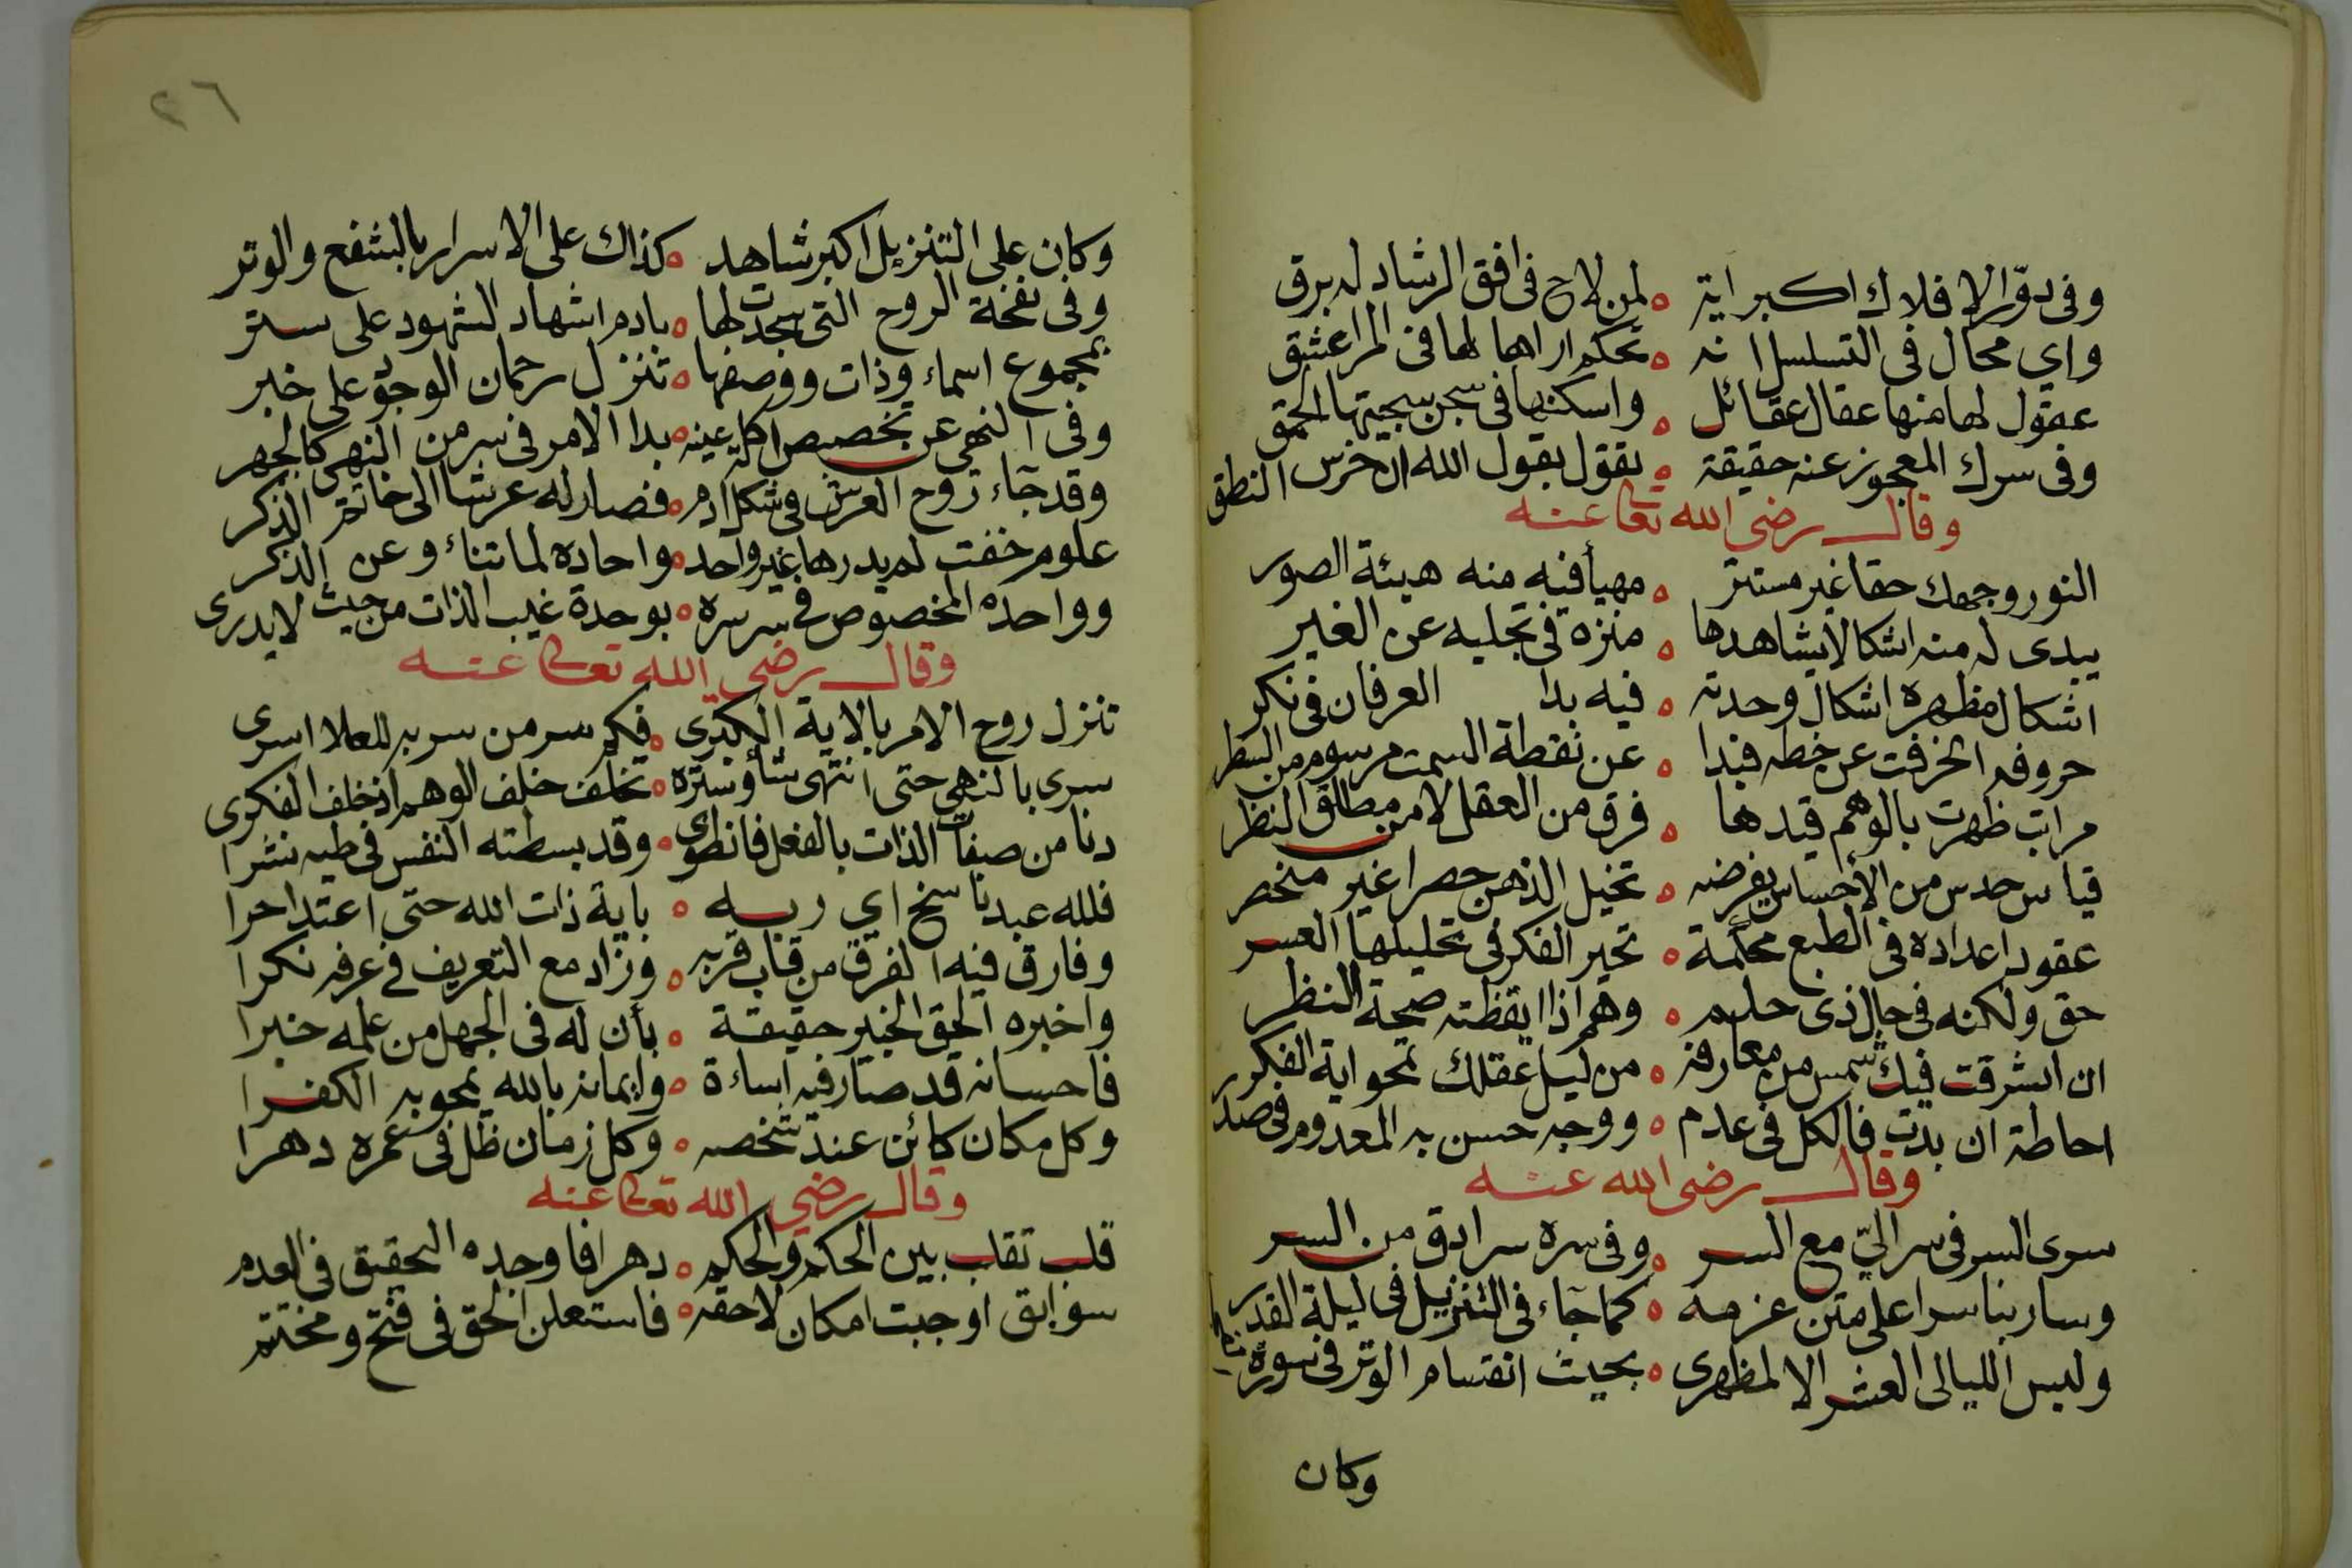 وفى دوّار الافلاك اكبر اية ه لمن لاح فى افق الرشاد له برق
واي محال فى التسلسل انه ه تحكم اراها لها فى المرا عشق
عقول لها منها عقال عقائل ه واسكنها فى سجن سجيتها الحمق
وفى سرك المعجوز عنه حقيقة ه نقول بقول الله ان خرس النطق
وقال رضى الله تعا عنه
النور وجهك حقا غير مستتر ه مهيأ فيه منه هيئة الصور
يبدى له منه اشكالا يشاهدها ه منزه فى تجليه عن الغير
اشكال مظهره اشكال وحدته ه فيه بدا العرفان فى نكر
حروفه انحرفت عن خطه فبدا ه عن نقطة السمت مرسوم من السطر
مراتب ظهرت بالوهم قيدها ه فرق من العقل لا من مطلق النظر
قياس حدس من الأحساس يفرضه ه تخيل الذهن حصرا غير منحصر
عقود اعداده فى الطبع محكمة ه تحير الفكر فى تحليلها العسر
حق ولكنه فى حال ذى حلم ه وهم اذا ايقظته صحة النظر
ان اشرقت فيك شمس من معارفه ه من ليل عقلك تمحو اية الفكور
احاطة ان بدت فالكل فى عدم ه ووجه حسن به المعدوم فى صد
وقال رضى الله عنه
سرى السر فى سر اليّ مع السر ه وفى سره سر ادق من السر
وسار بنا سرا على متن عزمه ه كما جاء فى التنزيل فى ليلة القدر
وليس الليالى العشر الا لمظهرى ه بحيث انقسام الوتر فى سورة
وكان
٢٦
وكان على التنزيل اكبر شاهد ه كذاك على الاسرار بالشفع والوتر
وفى نفخة الروح التى سجدت لها ه بادم اشهاد الشهود على ستر
بمجموع اسماء وذات ووصفها ه تنزل رحمان الوجود على خبر
وفى النهى عن تخصيص اكلة عينه ه بدا الامر فى سر من النهى كالجهر
وقد جاء روح العرش فى شكل ادم ه فصار له عرشا الى خاتم الذكر
علوم خفت لم يدرها غير واحد ه واحاده لما تناء وعن الذكر
وواحده المخصوص فى سر سره ه بوحدة غيب الذات من حيث لا يدرى
وقال رضى الله تعالى عنه
تنزل روح الامر بالاية الكبرى ه فكم سر من سر به للعلا اسرى
سرى بالنهى حتى انتهى شأو ستره ه تخلف خلف الوهم اذ خلف الفكرى
دنا من صفات الذات بالفعل فانطوى ه وقد بسطته النفس فى طيه نشرا
فلله عبد ناسخ اي ربه ه باية ذات الله حتى اعتدا حرا
وفارق فيه الفرق من قاب قربه ه وزاد مع التعريف فى عرفه نكرا
واخبره الحق الخبير حقيقة ه بأن له فى الجهل من علمه خبرا
فاحسانه قد صار فيه اساءة ه وايمانه بالله يمحو به الكفرا
وكل مكان كائن عند شخصه ه وكل زمان ظل فى عمره دهرا
وقال رضي الله تعا عنه
قلب تقلب بين الحكم والحكم ه دهرا فاوجده التحقيق فى العدم
سوابق اوجبت امكان لاحقه ه فاستعلن الحق فى فتح ومختتم